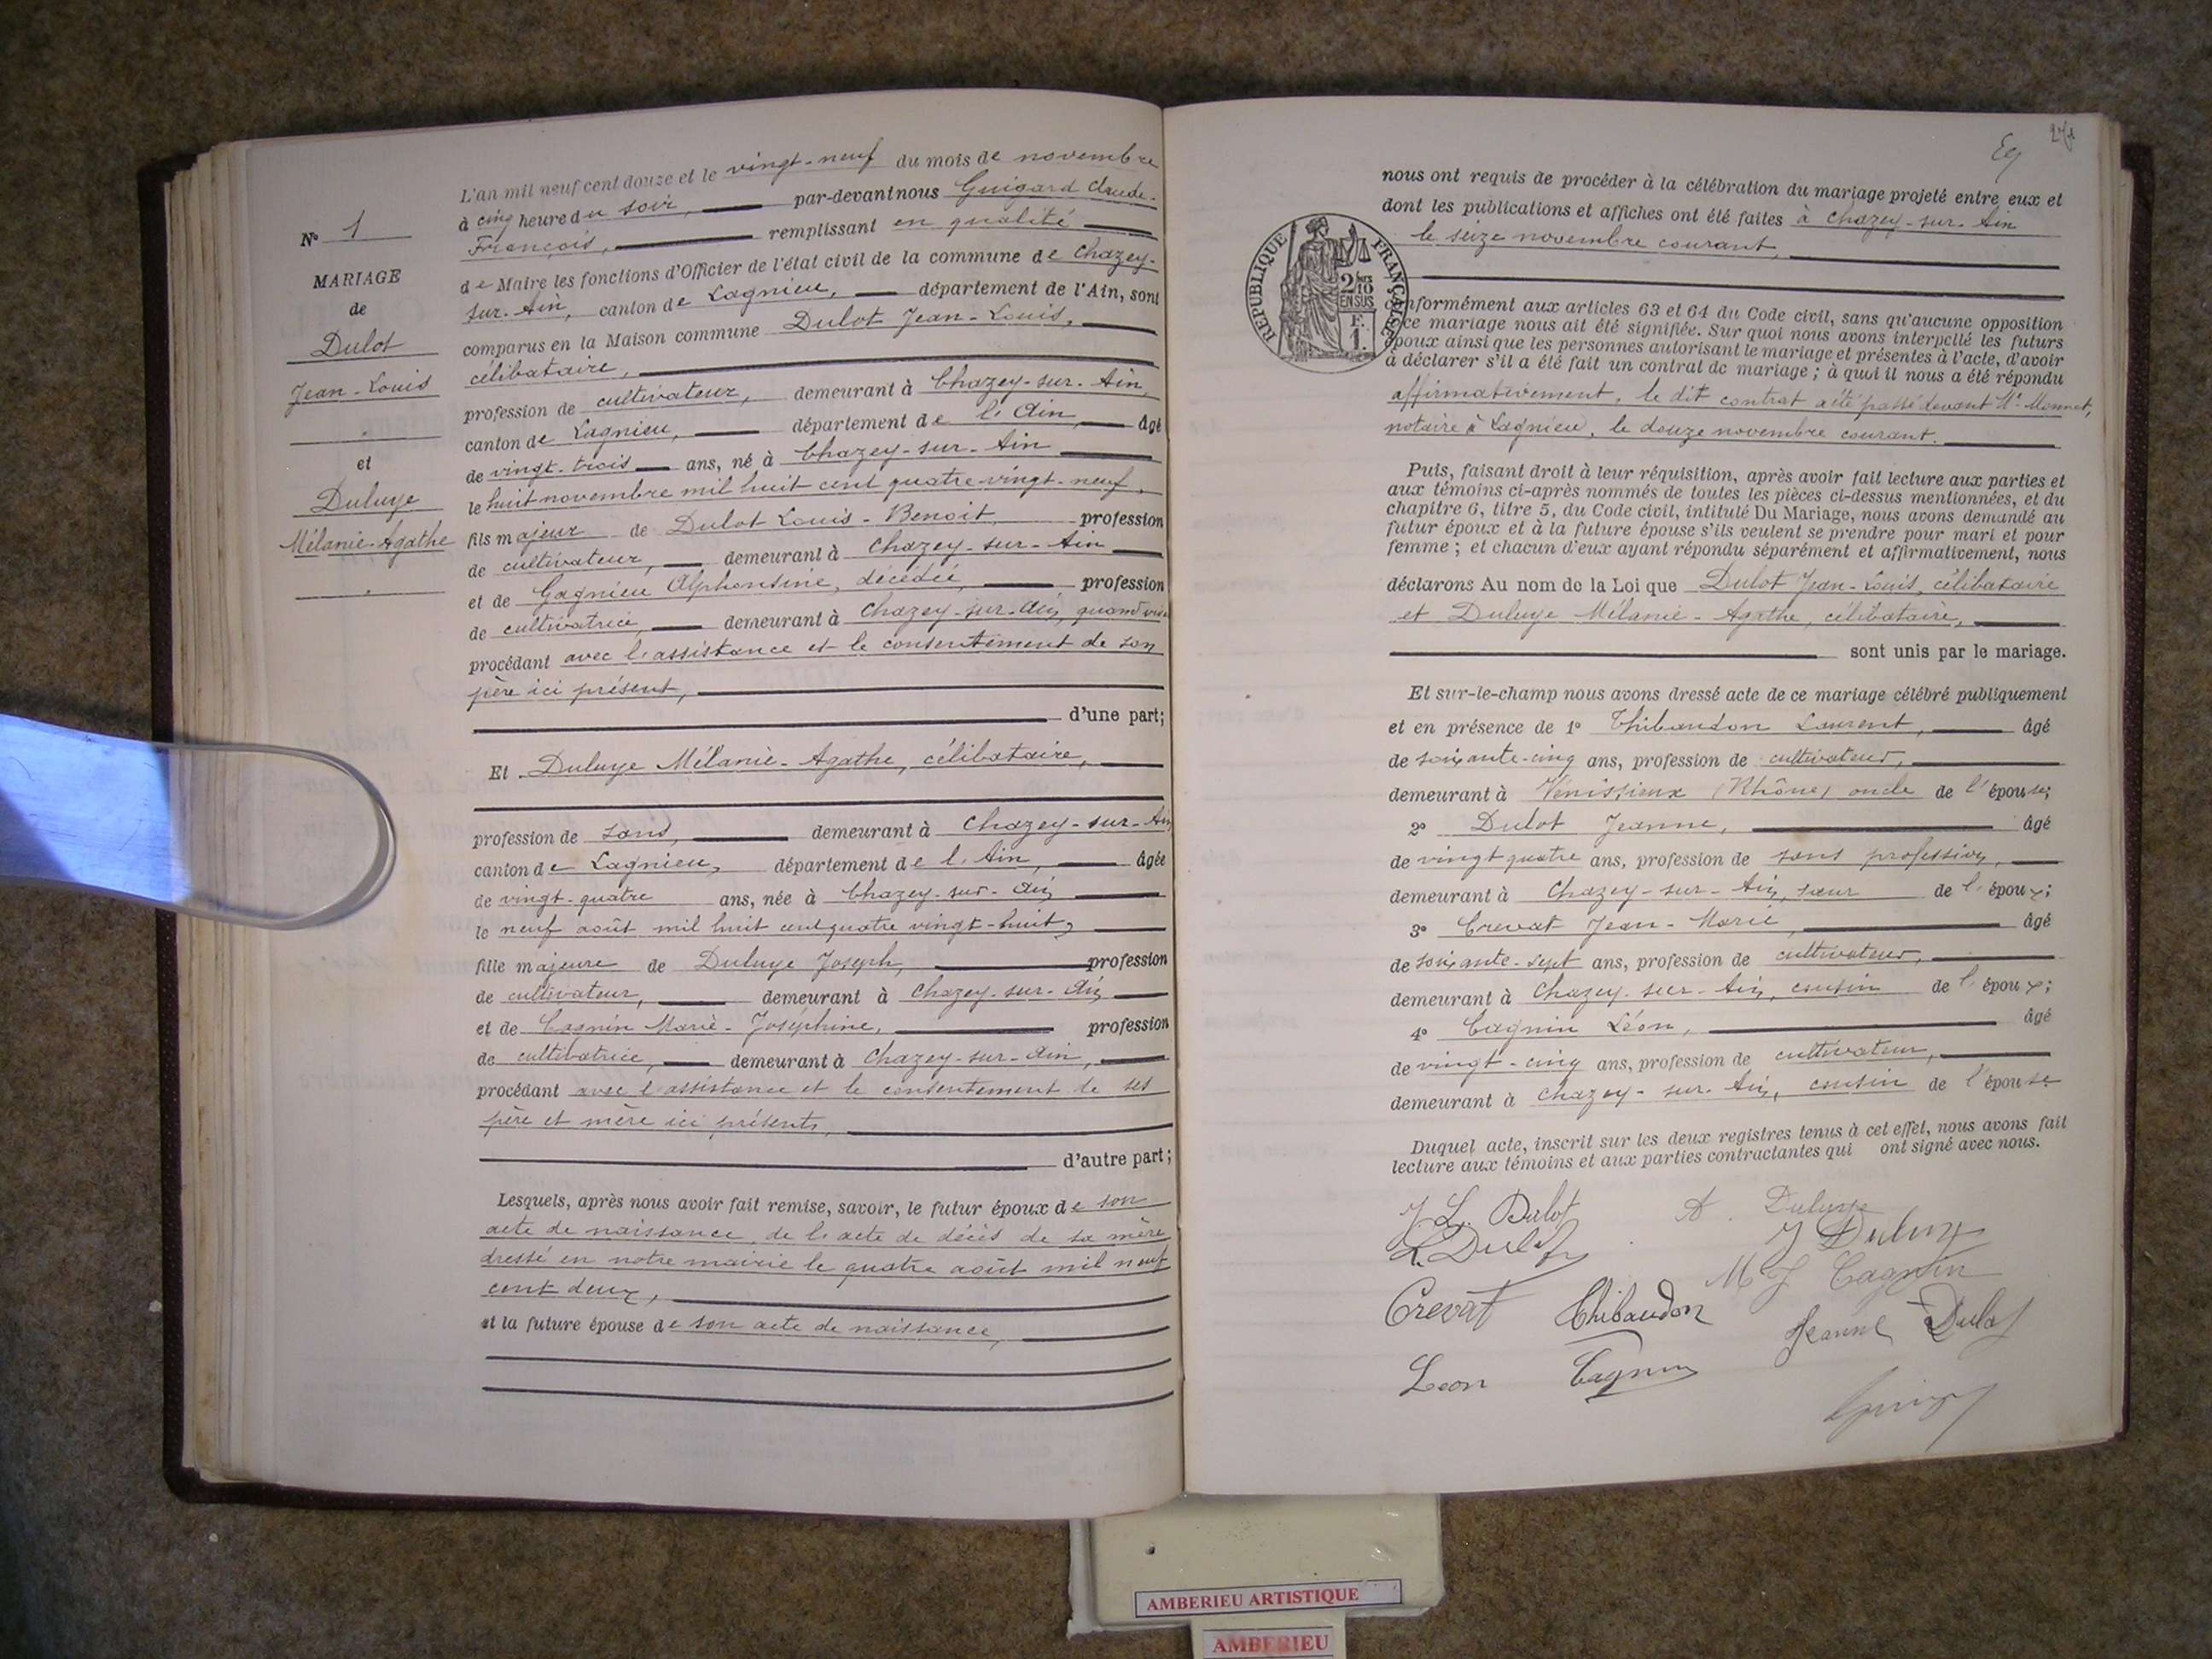 N° 1
MARIAGE
de
Dulot
Jean-Louis
et
Duluye
Mélanie-Agathe
L'an mil neuf cent douze et le vingt-neuf du mois de novembre
à cinq heure du soir, par-devant nous Guigard Claude-
François, remplissant en qualité
de Maire les fonctions d'Officier de l'état civil de la commune de Chazey-
sur-Ain, canton de Lagnieu, département de l'Ain, sont
comparus en la Maison commune Dulot Jean-Louis,
célibataire,
profession de cultivateur, demeurant à Chazey-sur-Ain,
canton de Lagnieu, département de l'Ain, âgé
de vingt-trois ans, né à Chazey-sur-Ain
le huit novembre mil huit cent quatre vingt-neuf,
fils majeur de Dulot Louis-Benoit profession
de cultivateur, demeurant à Chazey-sur-Ain
et de Gagnieu Alphonsine, décédée, profession
de cultivatrice, demeurant à Chazey-sur-Ain, quand vivait
procédant avec l'assistance et le consentement de son
père ici présent,
d'une part;
Et Duluye Mélanie-Agathe, célibataire,
profession de sans, demeurant à Chazey-sur-Ain
canton de Lagnieu, département de l'Ain, âgée
de vingt-quatre ans, née à Chazey-sur-Ain
le neuf août mil huit cent quatre vingt-huit,
fille majeure de Duluye Joseph, profession
de cultivateur, demeurant à Chazey-sur-Ain
et de Cagnin Marie-Joséphine, profession
de cultivatrice, demeurant à Chazey-sur-Ain,
procédant avec l'assistance et le consentement de ses
père et mère ici présents,
d'autre part;
Lesquels, après nous avoir fait remise, savoir, le futur époux de son
acte de naissance, de l'acte de décès de sa mère
dressé en notre mairie le quatre août mil neuf
cent deux,
et la future épouse de son acte de naissance,
271
nous ont requis de procéder à la célébration du mariage projeté entre eux et
dont les publications et affiches ont été faites à Chazey-sur-Ain
le seize novembre courant,
RÉPUBLIQUE FRANÇAISE
2/10
EN SUS
F.
1.
conformément aux articles 63 et 64 du Code civil, sans qu'aucune opposition
ce mariage nous ait été signifiée. Sur quoi nous avons interpellé les futurs
époux ainsi que les personnes autorisant le mariage et présentes à l'acte, d'avoir
à déclarer s'il a été fait un contrat de mariage; à quoi il nous a été répondu
affirmativement, le dit contrat a été passé devant Me Monnet,
notaire à Lagnieu, le douze novembre courant.
Puis, faisant droit à leur réquisition, après avoir fait lecture aux parties et
aux témoins ci-après nommés de toutes les pièces ci-dessus mentionnées, et du
chapitre 6, titre 5, du Code civil, intitulé Du Mariage, nous avons demandé au
futur époux et à la future épouse s'ils veulent se prendre pour mari et pour
femme; et chacun d'eux ayant répondu séparément et affirmativement, nous
déclarons Au nom de la Loi que Dulot Jean-Louis, célibataire
et Duluye Mélanie-Agathe, célibataire,
sont unis par le mariage.
Et sur-le-champ nous avons dressé acte de ce mariage célébré publiquement
et en présence de 1° Thibaudon Laurent, âgé
de soixante-cinq ans, profession de cultivateur,
demeurant à Venissieux (Rhône) oncle de l'épouse;
2° Dulot Jeanne, âgé
de vingt quatre ans, profession de sans profession,
demeurant à Chazey-sur-Ain, sœur de l'époux;
3° Crevat Jean-Marie, âgé
de soixante-sept ans, profession de cultivateur,
demeurant à Chazey-sur-Ain, cousin de l'époux;
4° Cagnin Léon, âgé
de vingt-cinq ans, profession de cultivateur,
demeurant à Chazey-sur-Ain, cousin de l'épouse
Duquel acte, inscrit sur les deux registres tenus à cet effet, nous avons fait
lecture aux témoins et aux parties contractantes qui ont signé avec nous.
J. L. Dulot A. Duluye
L. Dulot J Duluye
M J Cagnin
Crevat Thibaudon Jeanne Dulot
Leon Cagnin
AMBERIEU ARTISTIQUE
AMBERIEU